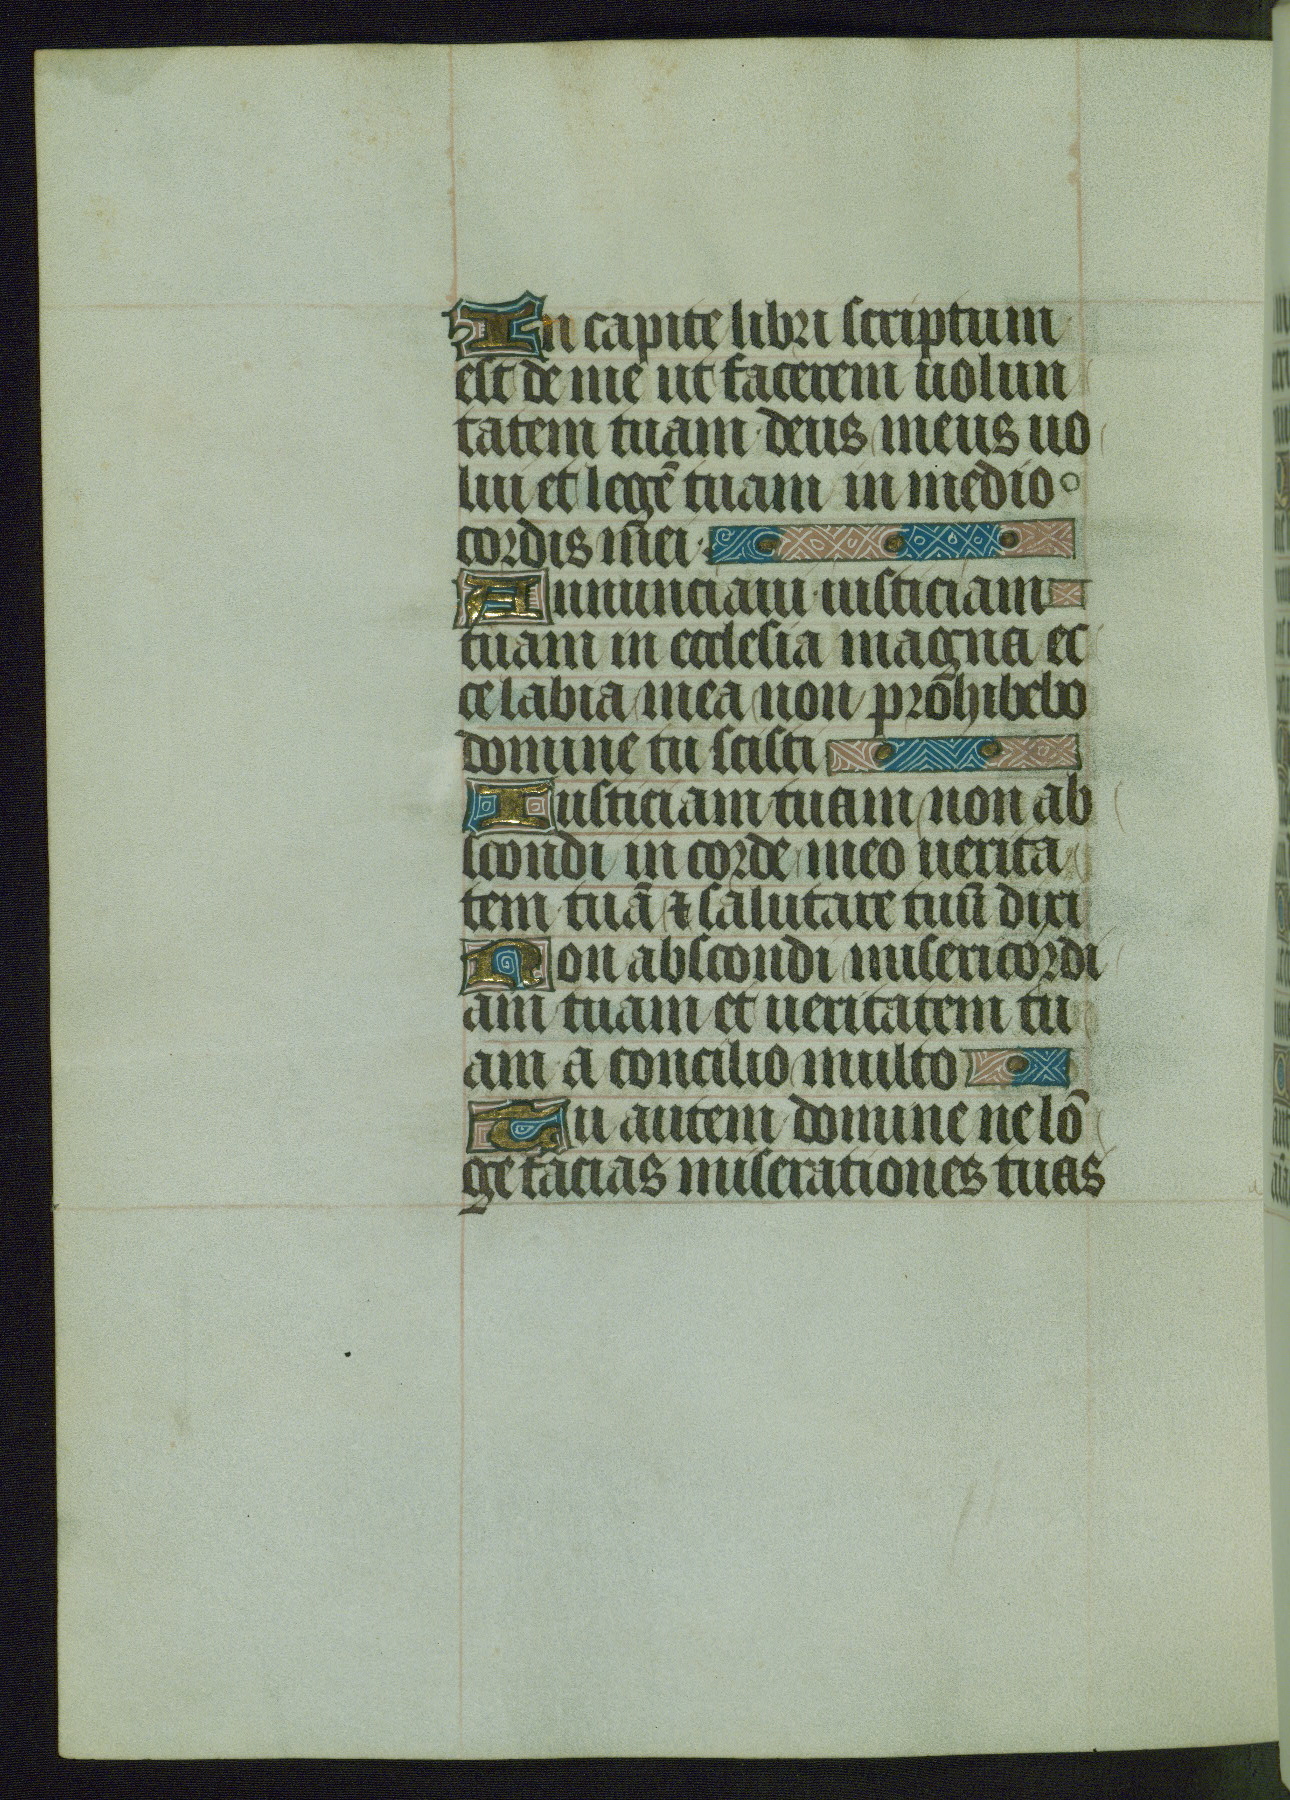 In capite libri scriptum
est de me ut facerem uolun
tatem tuam deus meus uo
lui et legē tuam in medio
cordis m̄ei
Annunciaui iusticiam
tuam in ecclesia magna ec
ce labia mea non prōhibebo
domine tu scisti
Iusticiam tuam non ab
scondi in corde meo uerita
tem tuā ⁊ salutare tuū dixi
Non abscondi misericordi
am tuam et ueritatem tu
am a concilio multo
Tu autem domine ne lō
ge facias miserationes tuas